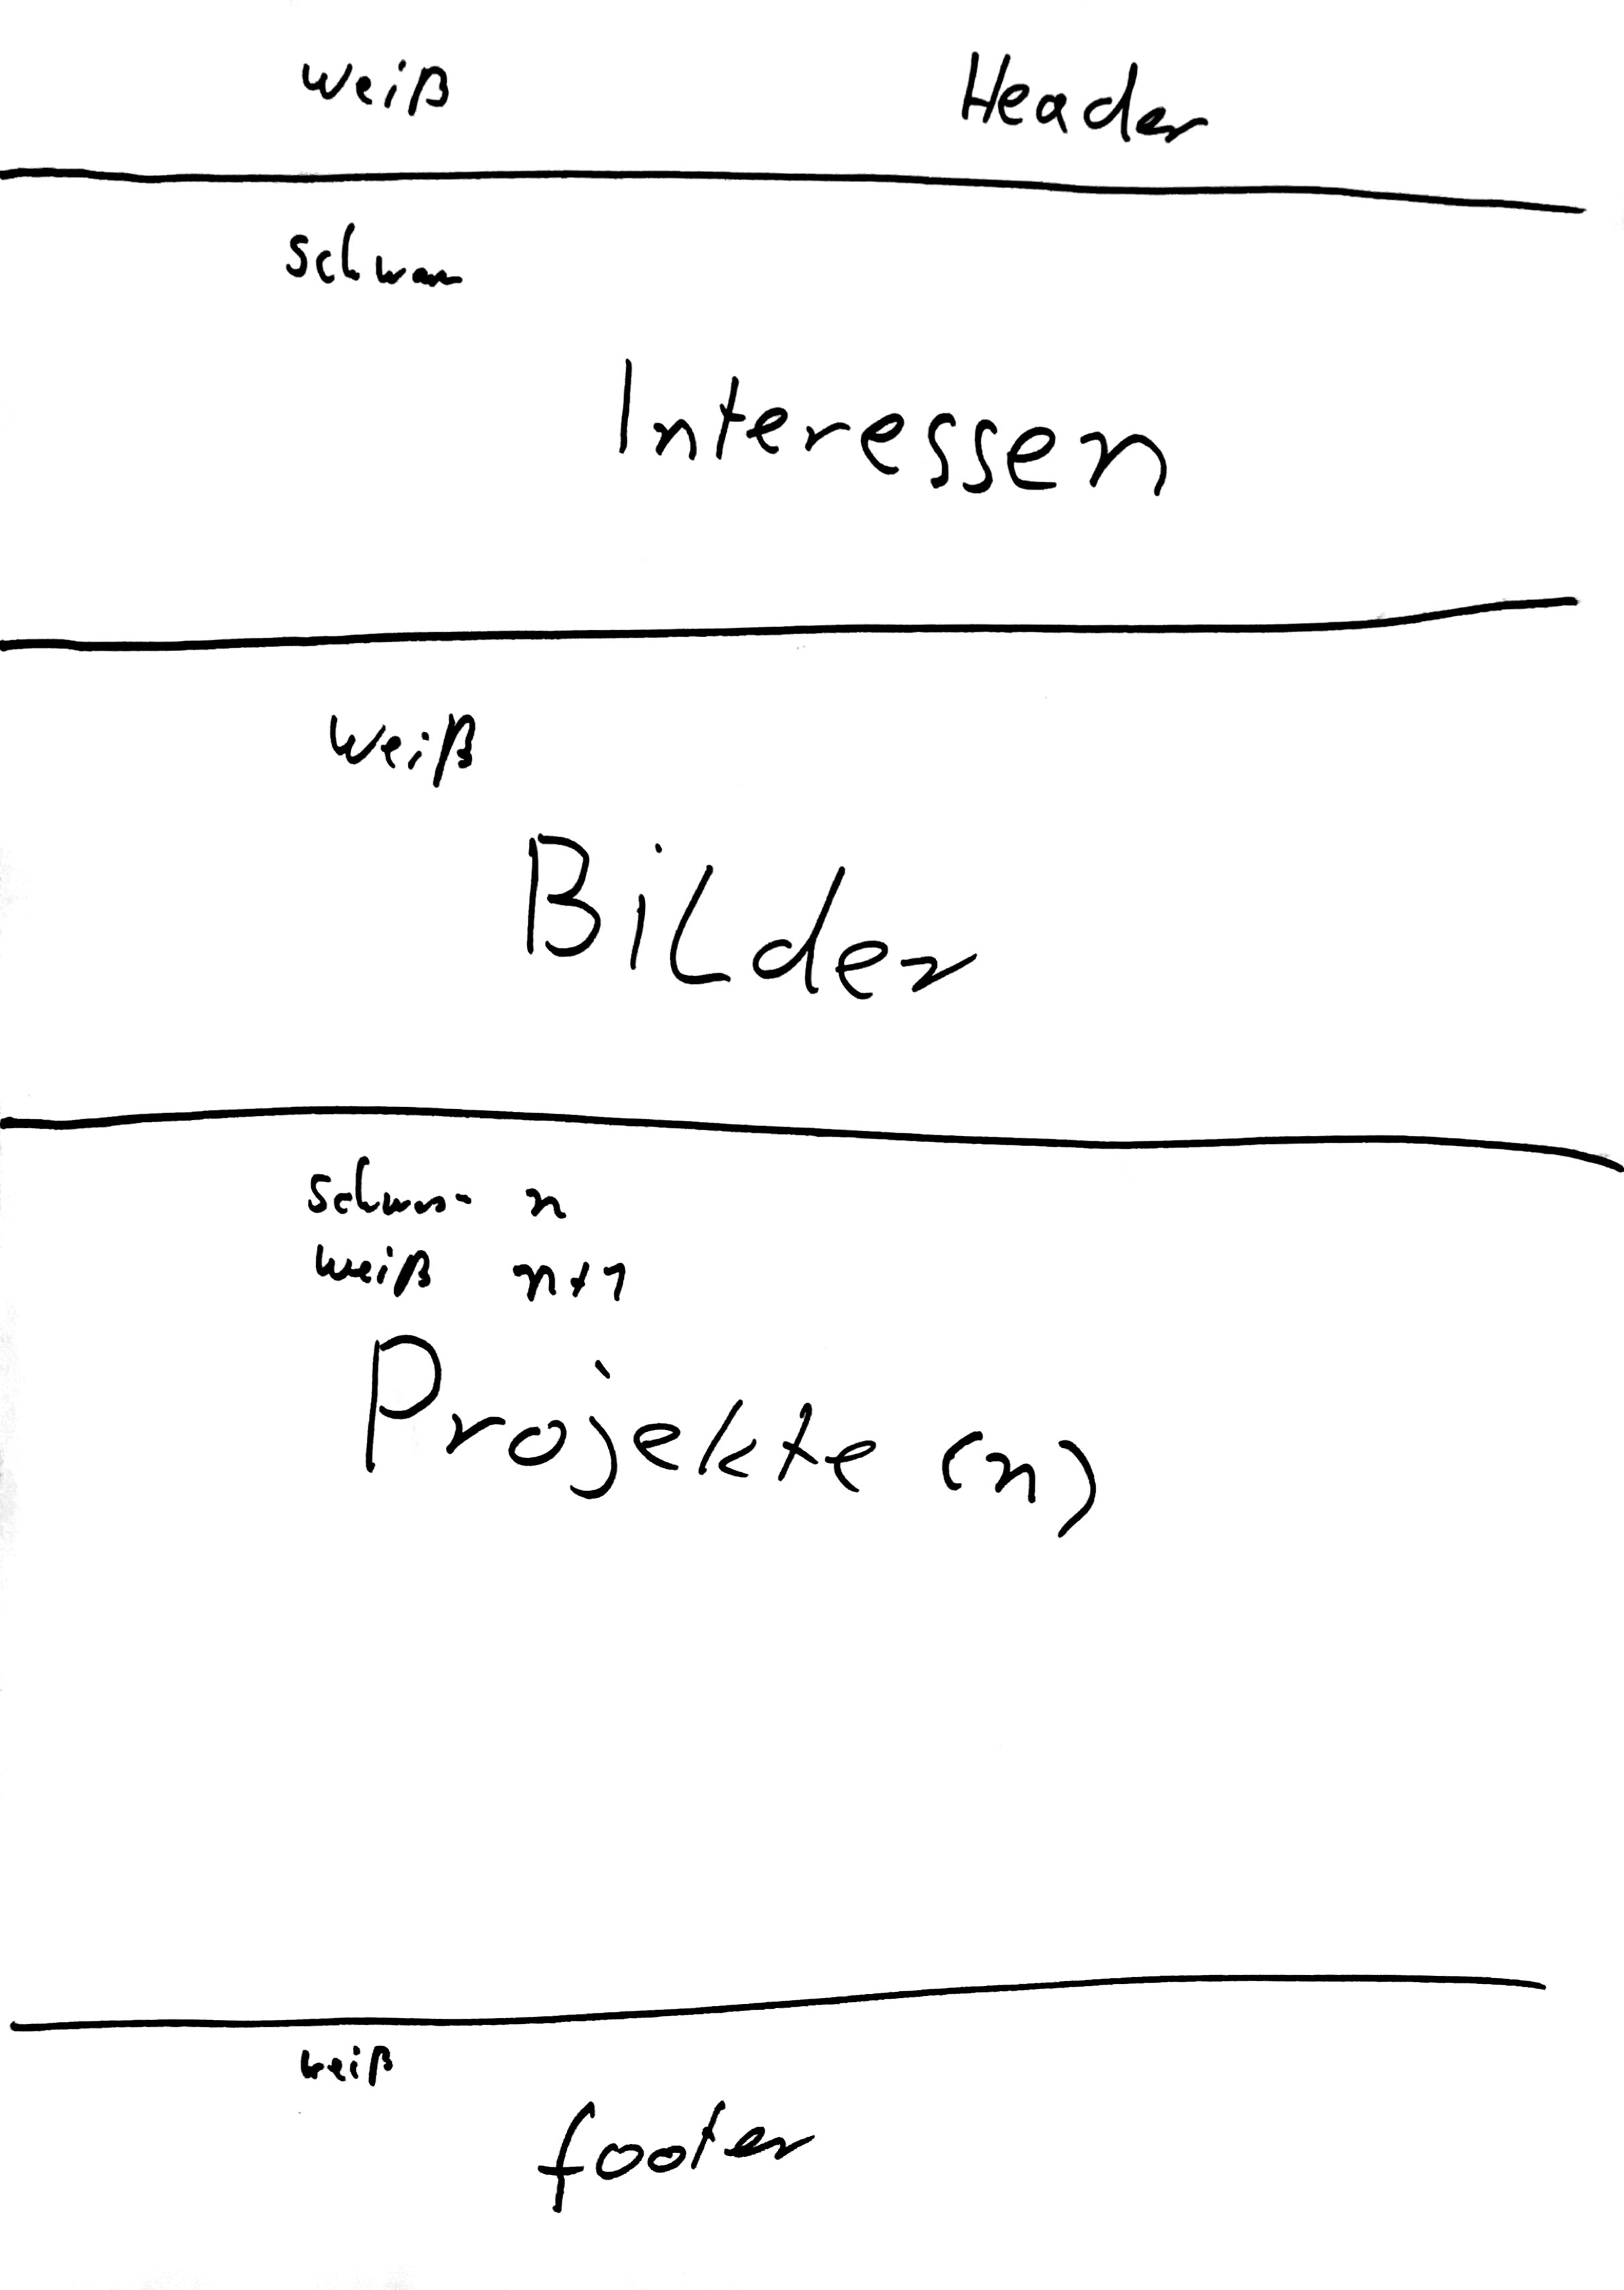 weiß Header
schwarz
Interessen
weiß
Bilder
schwarz n
weiß n+1
Projekte (n)
weiß
footer